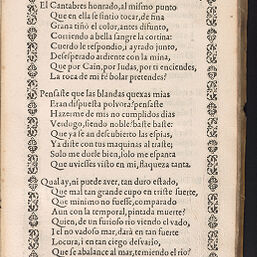 El Cantabres honrado, al mismo punto
Que en ella se sintio tocar, de fina
Grana tiñó el color, antes difunto,
Corriendo a bella sangre la cortina:
Cuerdo le respondio, i ayrado junto,
Desesperado ardiente con la mina,
Que por Cain, por Iudas, por ti enciendes,
La roca de mi fè bolar pretendes?
Pensaste que las blandas quexas mias
Eran dispuesta polvora? pensaste
Hazerme de mis no cumplidos dias
Verdugo, siendo noble? baste baste:
Que ya se an descubierto las espias,
Ya diste con tus maquinas al traste;
Solo me duele bien, i olo me espanta
Que uviesses visto en mi, flaqueza tanta.
Qual ay, ni puede aver, tan duro estado,
Que mal tan grande cupo en triste suerte,
Que minimo no fuesse, comparado
Aun con la temporal, pintada muerte?
Quien, de un furioso rio viendo el vado,
I el no vadoso mar, dará en tan fuerte
Locura, i en tan ciego desvario,
Que se abalance al mar, temiendo el rio?